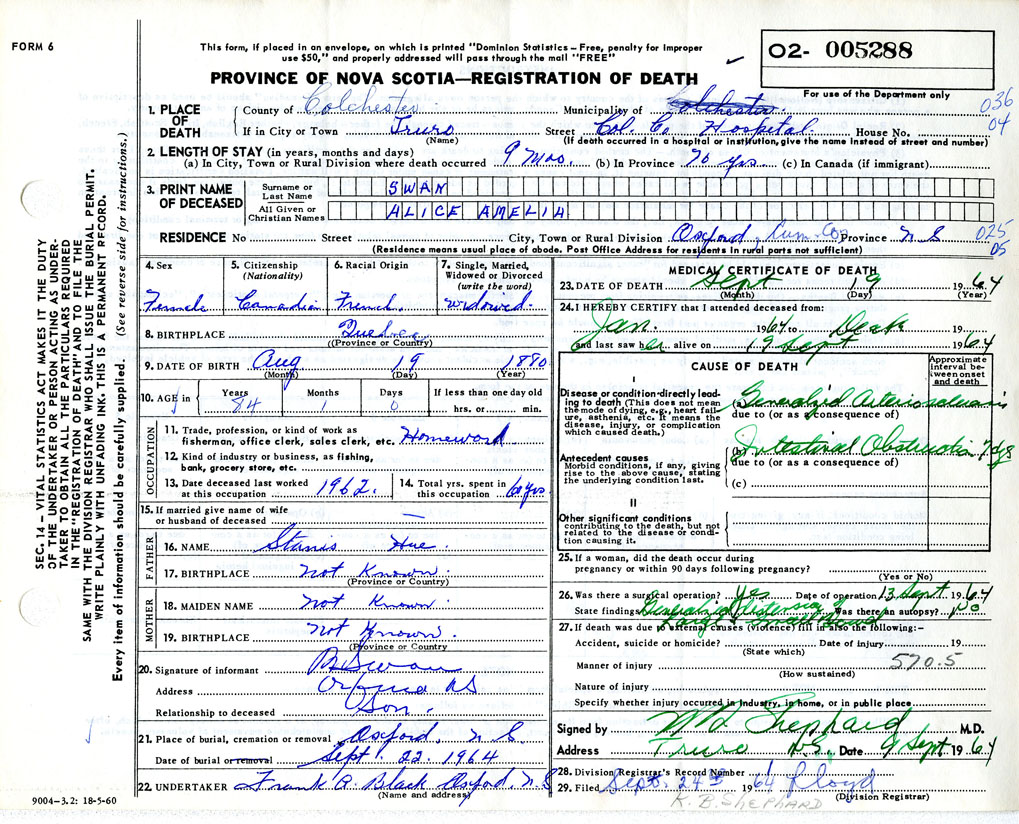 FORM 6
This form, if placed in an envelope, on which is printed "Dominion Statistics – Free, penalty for improper
use $50," and properly addressed will pass through the mail "FREE"
O2- 005288
PROVINCE OF NOVA SCOTIA—REGISTRATION OF DEATH
For use of the Department only
036
04
1. PLACE OF DEATH
County of Colchester Municipality of Colchester
If in City or Town Truro Street Col. Co. Hospital House No.
(Name) (If death occurred in a hospital or institution, give the name instead of street and number)
2. LENGTH OF STAY (in years, months and days)
(a) In City, Town or Rural Division where death occurred 9 Mos. (b) In Province 70 yrs. (c) In Canada (if immigrant)
3. PRINT NAME OF DECEASED
Surname or Last Name SWAN
All Given or Christian Names ALICE AMELIA
RESIDENCE No Street City, Town or Rural Division Oxford, Cum. Co. Province N S
025
05
(Residence means usual place of abode. Post Office Address for residents in rural parts not sufficient)
4. Sex
Female
5. Citizenship (Nationality)
Canadian
6. Racial Origin
French
7. Single, Married, Widowed or Divorced (write the word)
Widowed.
8. BIRTHPLACE Quebec
(Province or Country)
9. DATE OF BIRTH Aug 19 1880
(Month) (Day) (Year)
10. AGE in Years Months Days If less than one day old
84 1 0 hrs. or min.
OCCUPATION
11. Trade, profession, or kind of work as
fisherman, office clerk, sales clerk, etc. Homework
12. Kind of industry or business, as fishing,
bank, grocery store, etc.
13. Date deceased last worked
at this occupation 1962.
14. Total yrs. spent in
this occupation 60 yrs
15. If married give name of wife
or husband of deceased —
FATHER
16. NAME Stanis Hue.
17. BIRTHPLACE Not Known.
(Province or Country)
MOTHER
18. MAIDEN NAME Not Known.
19. BIRTHPLACE Not Known.
(Province or Country
20. Signature of informant B Swan
Address NS
Relationship to deceased Son.
21. Place of burial, cremation or removal Oxford, N.S.
Date of burial or removal Sept. 22. 1964
22. UNDERTAKER Frank A. Black Oxford, N.S
(Name and address)
9004—3.2: 18-5-60
MEDICAL CERTIFICATE OF DEATH
23. DATE OF DEATH Sept 19 1964
(Month) (Day) (Year)
24. I HEREBY CERTIFY that I attended deceased from:
Jan. 1964 to Death 19
and last saw her alive on 19 Sept 1964
CAUSE OF DEATH
Approximate interval between onset and death
I
Disease or condition directly leading to death (This does not mean the mode of dying, e.g., heart failure, asthenia, etc. It means the disease, injury, or complication which caused death.)
(a) Generalized Arteriosclerosis
due to (or as a consequence of)
Antecedent causes
Morbid conditions, if any, giving rise to the above cause, stating the underlying condition last.
(b) Intestinal Obstruction 7 dys
due to (or as a consequence of)
(c)
II
Other significant conditions
contributing to the death, but not related to the disease or condition causing it.
25. If a woman, did the death occur during
pregnancy or within 90 days following pregnancy?
(Yes or No)
26. Was there a surgical operation? Yes Date of operation 13 Sept. 1964
State findings Generalized distension of Was there an autopsy? No
Large & Small Bowel
27. If death was due to external causes (violence) fill in also the following:–
Accident, suicide or homicide? Date of injury 19
(State which)
Manner of injury 570.5
(How sustained)
Nature of injury
Specify whether injury occurred in industry, in home, or in public place
Signed by MD Sheppard M.D.
Address Truro N.S. Date 9 Sept 1964
28. Division Registrar's Record Number
29. Filed Sept. 24th 1964 Lloyd
K. B. SHEPHARD (Division Registrar)
SEC. 14 – VITAL STATISTICS ACT MAKES IT THE DUTY
OF THE UNDERTAKER OR PERSON ACTING AS UNDER-
TAKER TO OBTAIN ALL THE PARTICULARS REQUIRED
IN THE "REGISTRATION OF DEATH" AND TO FILE THE
SAME WITH THE DIVISION REGISTRAR WHO SHALL ISSUE THE BURIAL PERMIT.
WRITE PLAINLY WITH UNFADING INK. THIS IS A PERMANENT RECORD.
Every item of information should be carefully supplied. (See reverse side for instructions.)